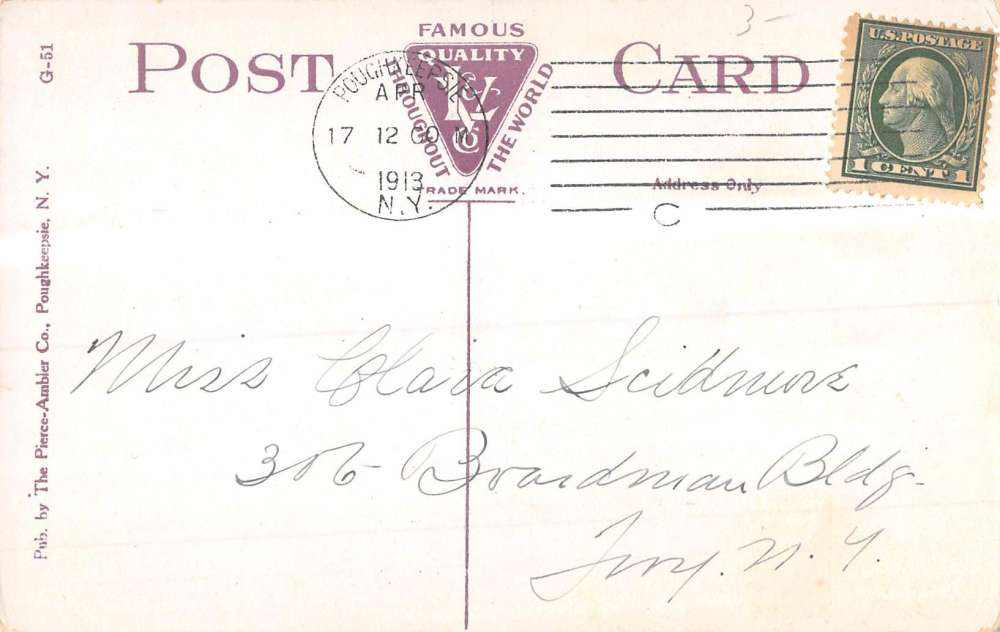 G-51
POST CARD
FAMOUS
QUALITY
THROUGHOUT
THE WORLD
TRADE MARK.
POUGHKEEPSIE
APR
17 12 00 M
1913
N.Y.
U.S. POSTAGE
1 CENT 1
Address Only
C
3-
Pub. by The Pierce-Ambler Co., Poughkeepsie, N. Y.
Miss Clara Scidmore
306 Boardman Bldg.
Troy. N. Y.